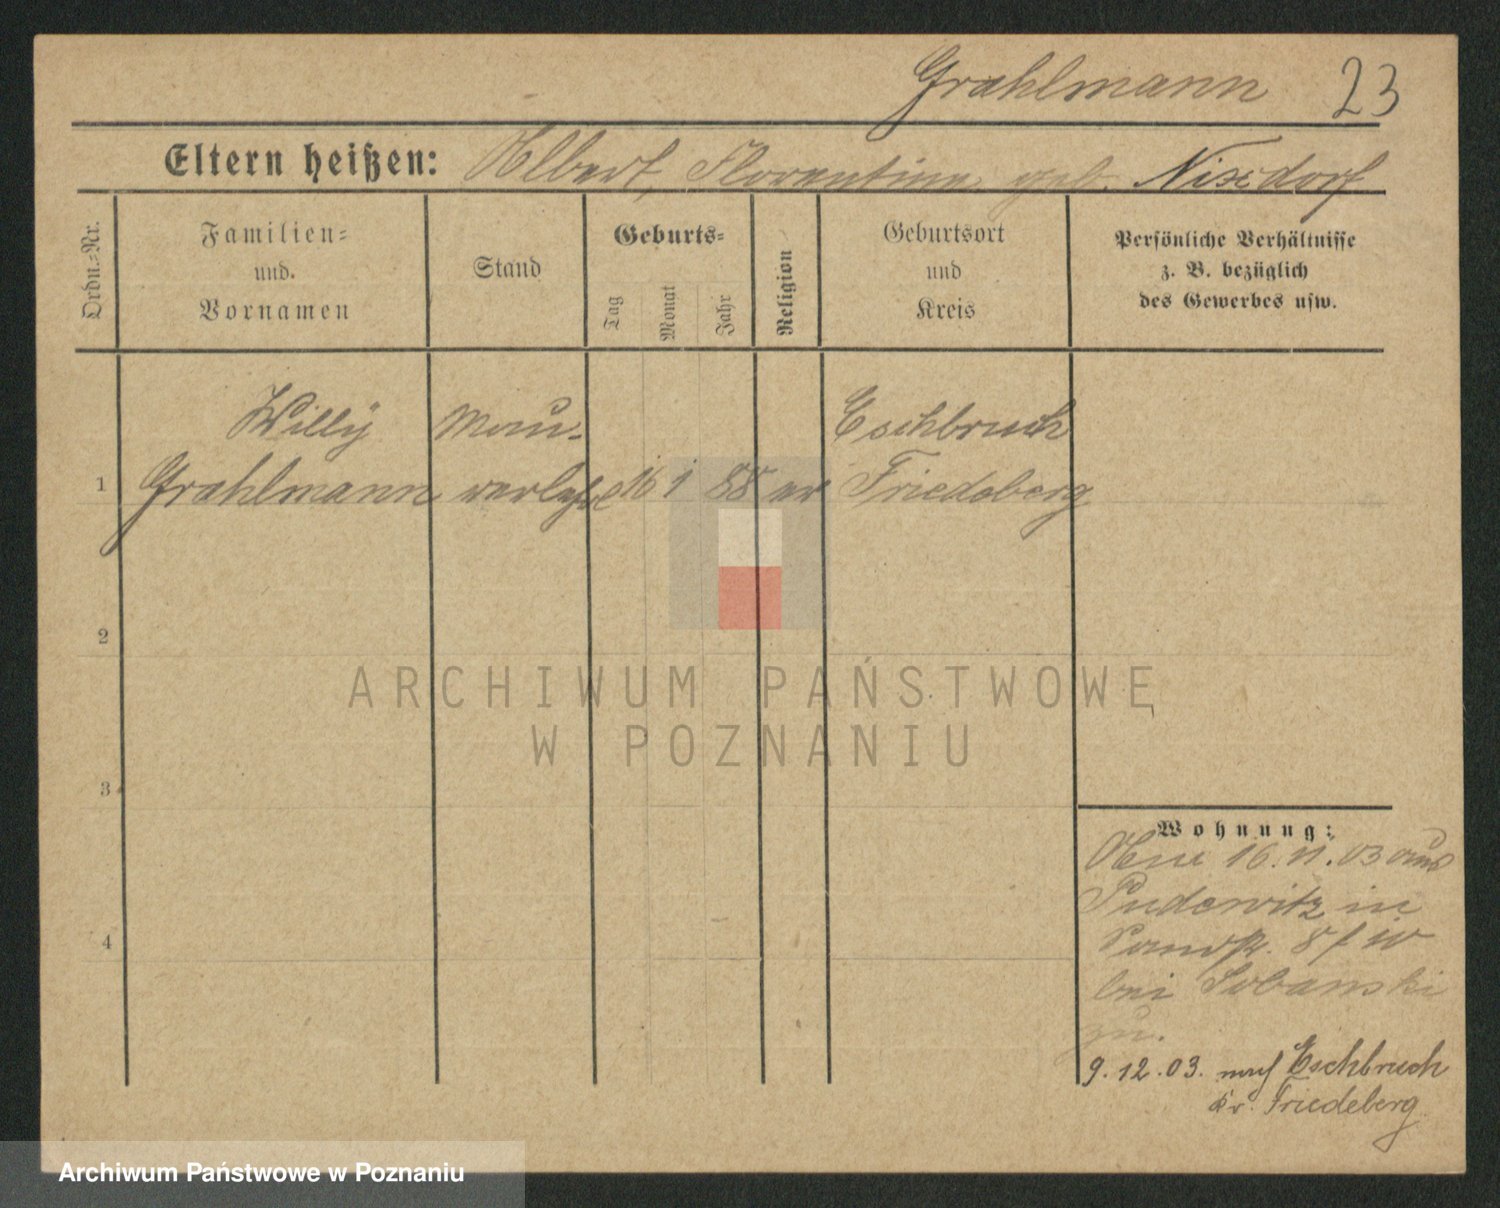 Grahlmann 23
Eltern heißen: Albert, Florentine geb. Nixdorf
Ordn.-Nr.
Familien-
und.
Vornamen
Stand
Geburts-
Tag
Monat
Jahr
Religion
Geburtsort
und
Kreis
Persönliche Verhältnisse
z. B. bezüglich
des Gewerbes usw.
Willy Mau- Eschbruch
1 Grahlmann 16 1 88 ev Friedeberg
2
ARCHIWUM PAŃSTWOWE
W POZNANIU
3
Wohnung:
16. 11. 03 aus
Pudewitz in
8 / IV
bei Sobanski
zu.
4
9. 12. 03. nach Eschbruch
Kr. Friedeberg
Archiwum Państwowe w Poznaniu